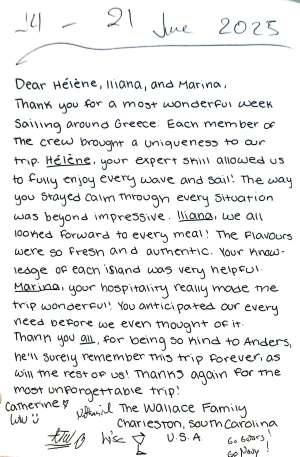 14 - 21 June 2025
Dear Hélène, Iliana, and Marina,
Thank you for a most wonderful week
Sailing around Greece. Each member of
the crew brought a uniqueness to our
trip. Hélène, your expert skill allowed us
to fully enjoy every wave and sail! The way
you stayed calm through every situation
was beyond impressive. Iliana, we all
looked forward to every meal! The flavours
were so fresh and authentic. Your know-
ledge of each island was very helpful.
Marina, your hospitality really made the
trip wonderful! You anticipated our every
need before we even thought of it.
Thank you all, for being so kind to Anders,
he'll surely remember this trip forever, as
will the rest of us! Thanks again for the
most unforgettable trip!
Catherine The Wallace Family
Charleston, South Carolina
U.S.A Go Bears!
Go Navy!